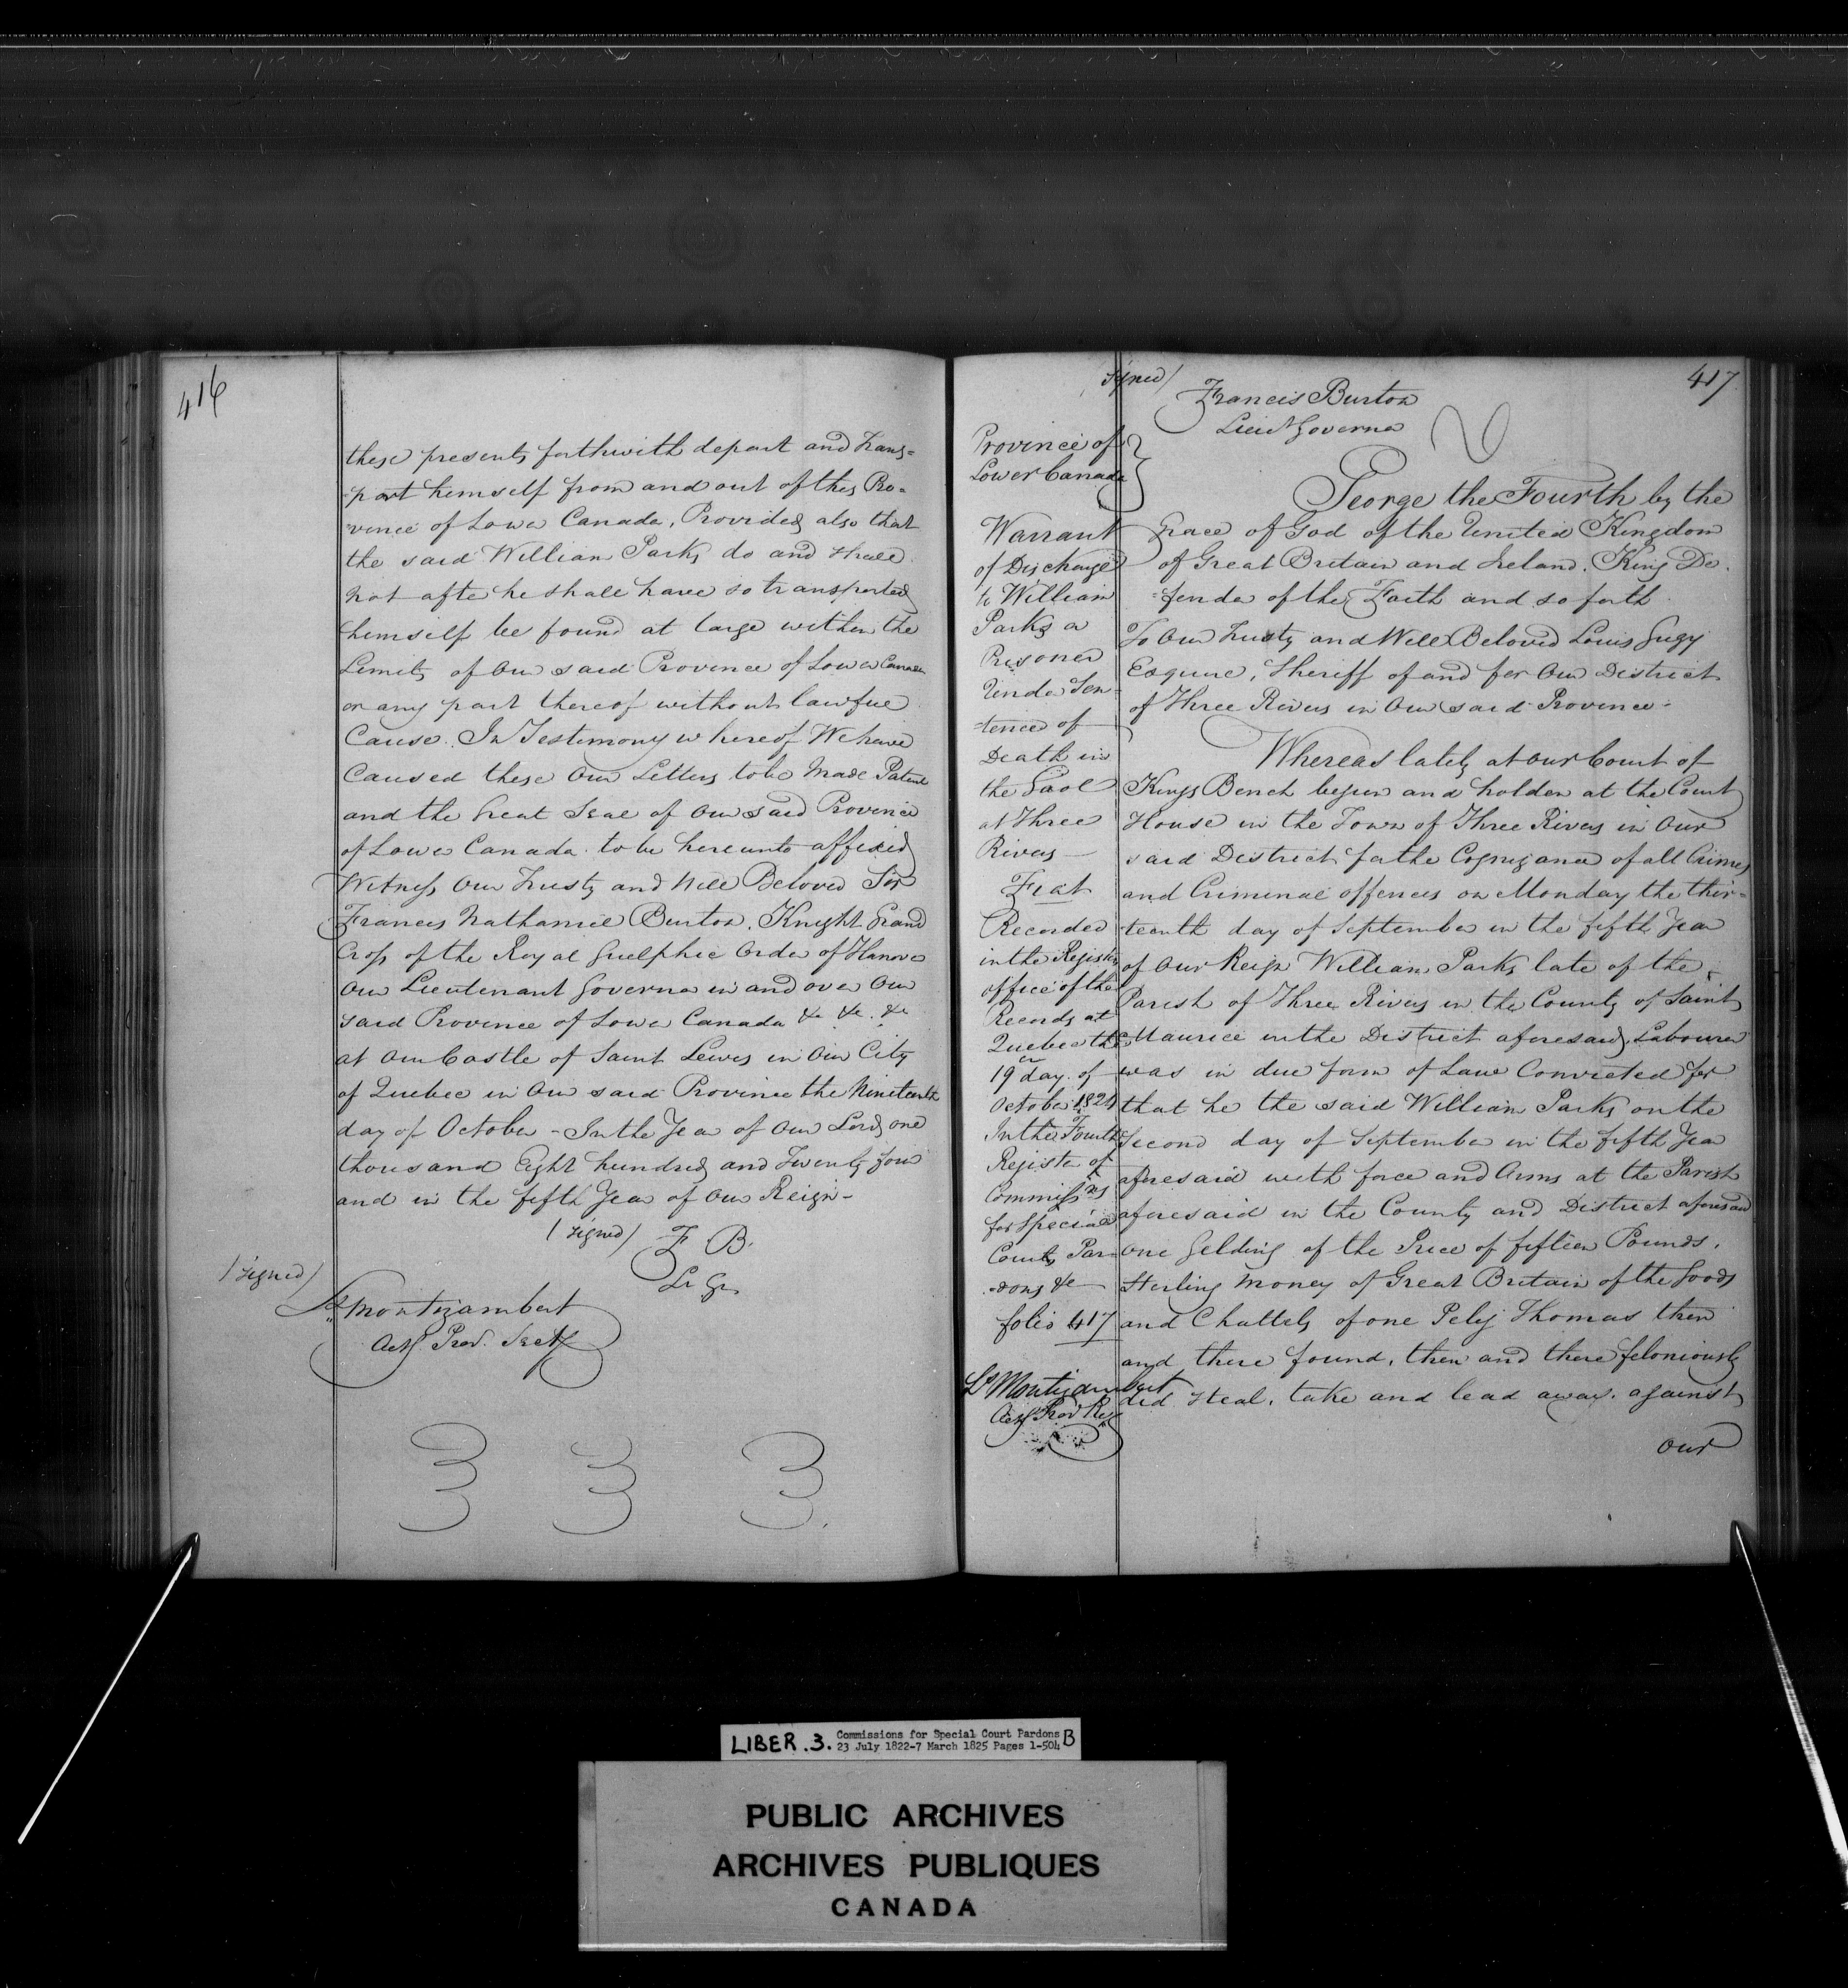 416
these presents forthwith depart and trans=
=port himself from and out of this Pro=
=vince of Lower Canada, Provided also that
the said William Parks do and shall
not after he shall have so transported
himself be found at large within the
Limits of Our said Province of Lower Canada
or any part thereof without lawful
Cause. In Testimony whereof We have
Caused these Our Letters to be made Patent
and the Great Seal of Our said Province
of Lower Canada to be hereunto affixed
Witness Our Trusty and Well Beloved Sir
Francis Nathaniel Burton, Knight Grand
Cross of the Royal Guelphic Order of Hanover
Our Lieutenant Governor in and over Our
said Province of Lower Canada &c &c. &c
at Our Castle of Saint Lewis in Our City
of Quebec in Our said Province the Nineteenth
day of October - In the Year of Our Lord one
thousand Eight hundred and Twenty four
and in the fifth Year of Our Reign -
/signed/ F. B.
Lt Gr
/signed/
Ls Montizambert
Actg Prov. Secy
417
signed/
Francis Burton
Lieut Governor
Province of
Lower Canada
Warrant
of Discharge
to William
Parks a
Prisoner
Under Sen=
=tence of
Death in
the Gaol
at Three
Rivers —
Fiat
Recorded
in the Register
office of the
Records at
Quebec the
19th day of
October 1824
In the Fourth
Register of
Commissns
for Special
Courts Par=
=dons &c
folio 417
Ls Montizambert
Actg Prov Reg
George the Fourth by the
Grace of God of the United Kingdom
of Great Britain and Ireland, King De=
=fender of the Faith and so forth.
To Our Trusty and Well Beloved Louis Gugy
Esquire, Sheriff of and for Our District
of Three Rivers in Our said Province -
Whereas lately at our Court of
Kings Bench begun and holden at the Court
House in the Town of Three Rivers in Our
said District for the Cognizance of all Crimes
and Criminal offences on Monday the thir=
teenth day of September in the fifth Year
of Our Reign William Parks late of the
Parish of Three Rivers in the County of Saint
Maurice in the District aforesaid, Labourer
was in due form of Law Convicted for
that he the said William Parks on the
Second day of September in the fifth Year
aforesaid with force and Arms at the Parish
aforesaid in the County and District aforesaid
One Gelding of the Price of fifteen Pounds,
Sterling money of Great Britain of the Goods
and Chattels of one Peleg Thomas then
and there found, then and there feloniously
did steal, take and lead away, against
our
3 3 3.
LIBER .3. Commissions for Special Court Pardons B
23 July 1822-7 March 1825 Pages 1-504
PUBLIC ARCHIVES
ARCHIVES PUBLIQUES
CANADA